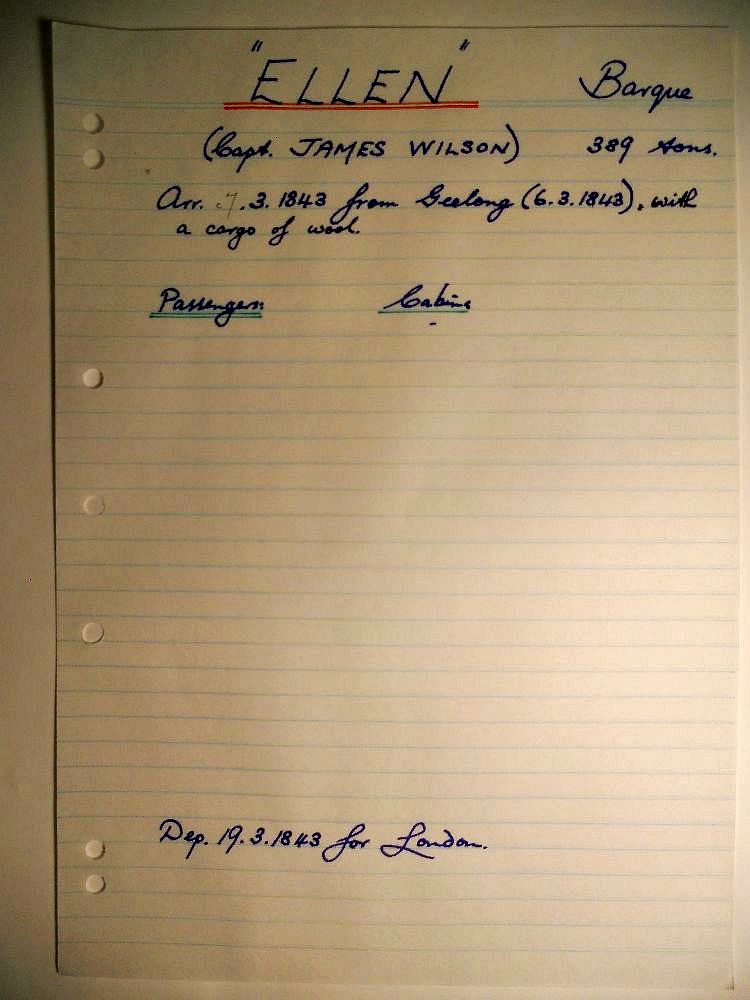 "ELLEN" Barque
(Capt. JAMES WILSON) 389 tons.
Arr. .3.1843 from Geelong (6.3.1843), with
a cargo of wool.
Passengers: Cabin:
-
Dep. 19.3.1843 for London.